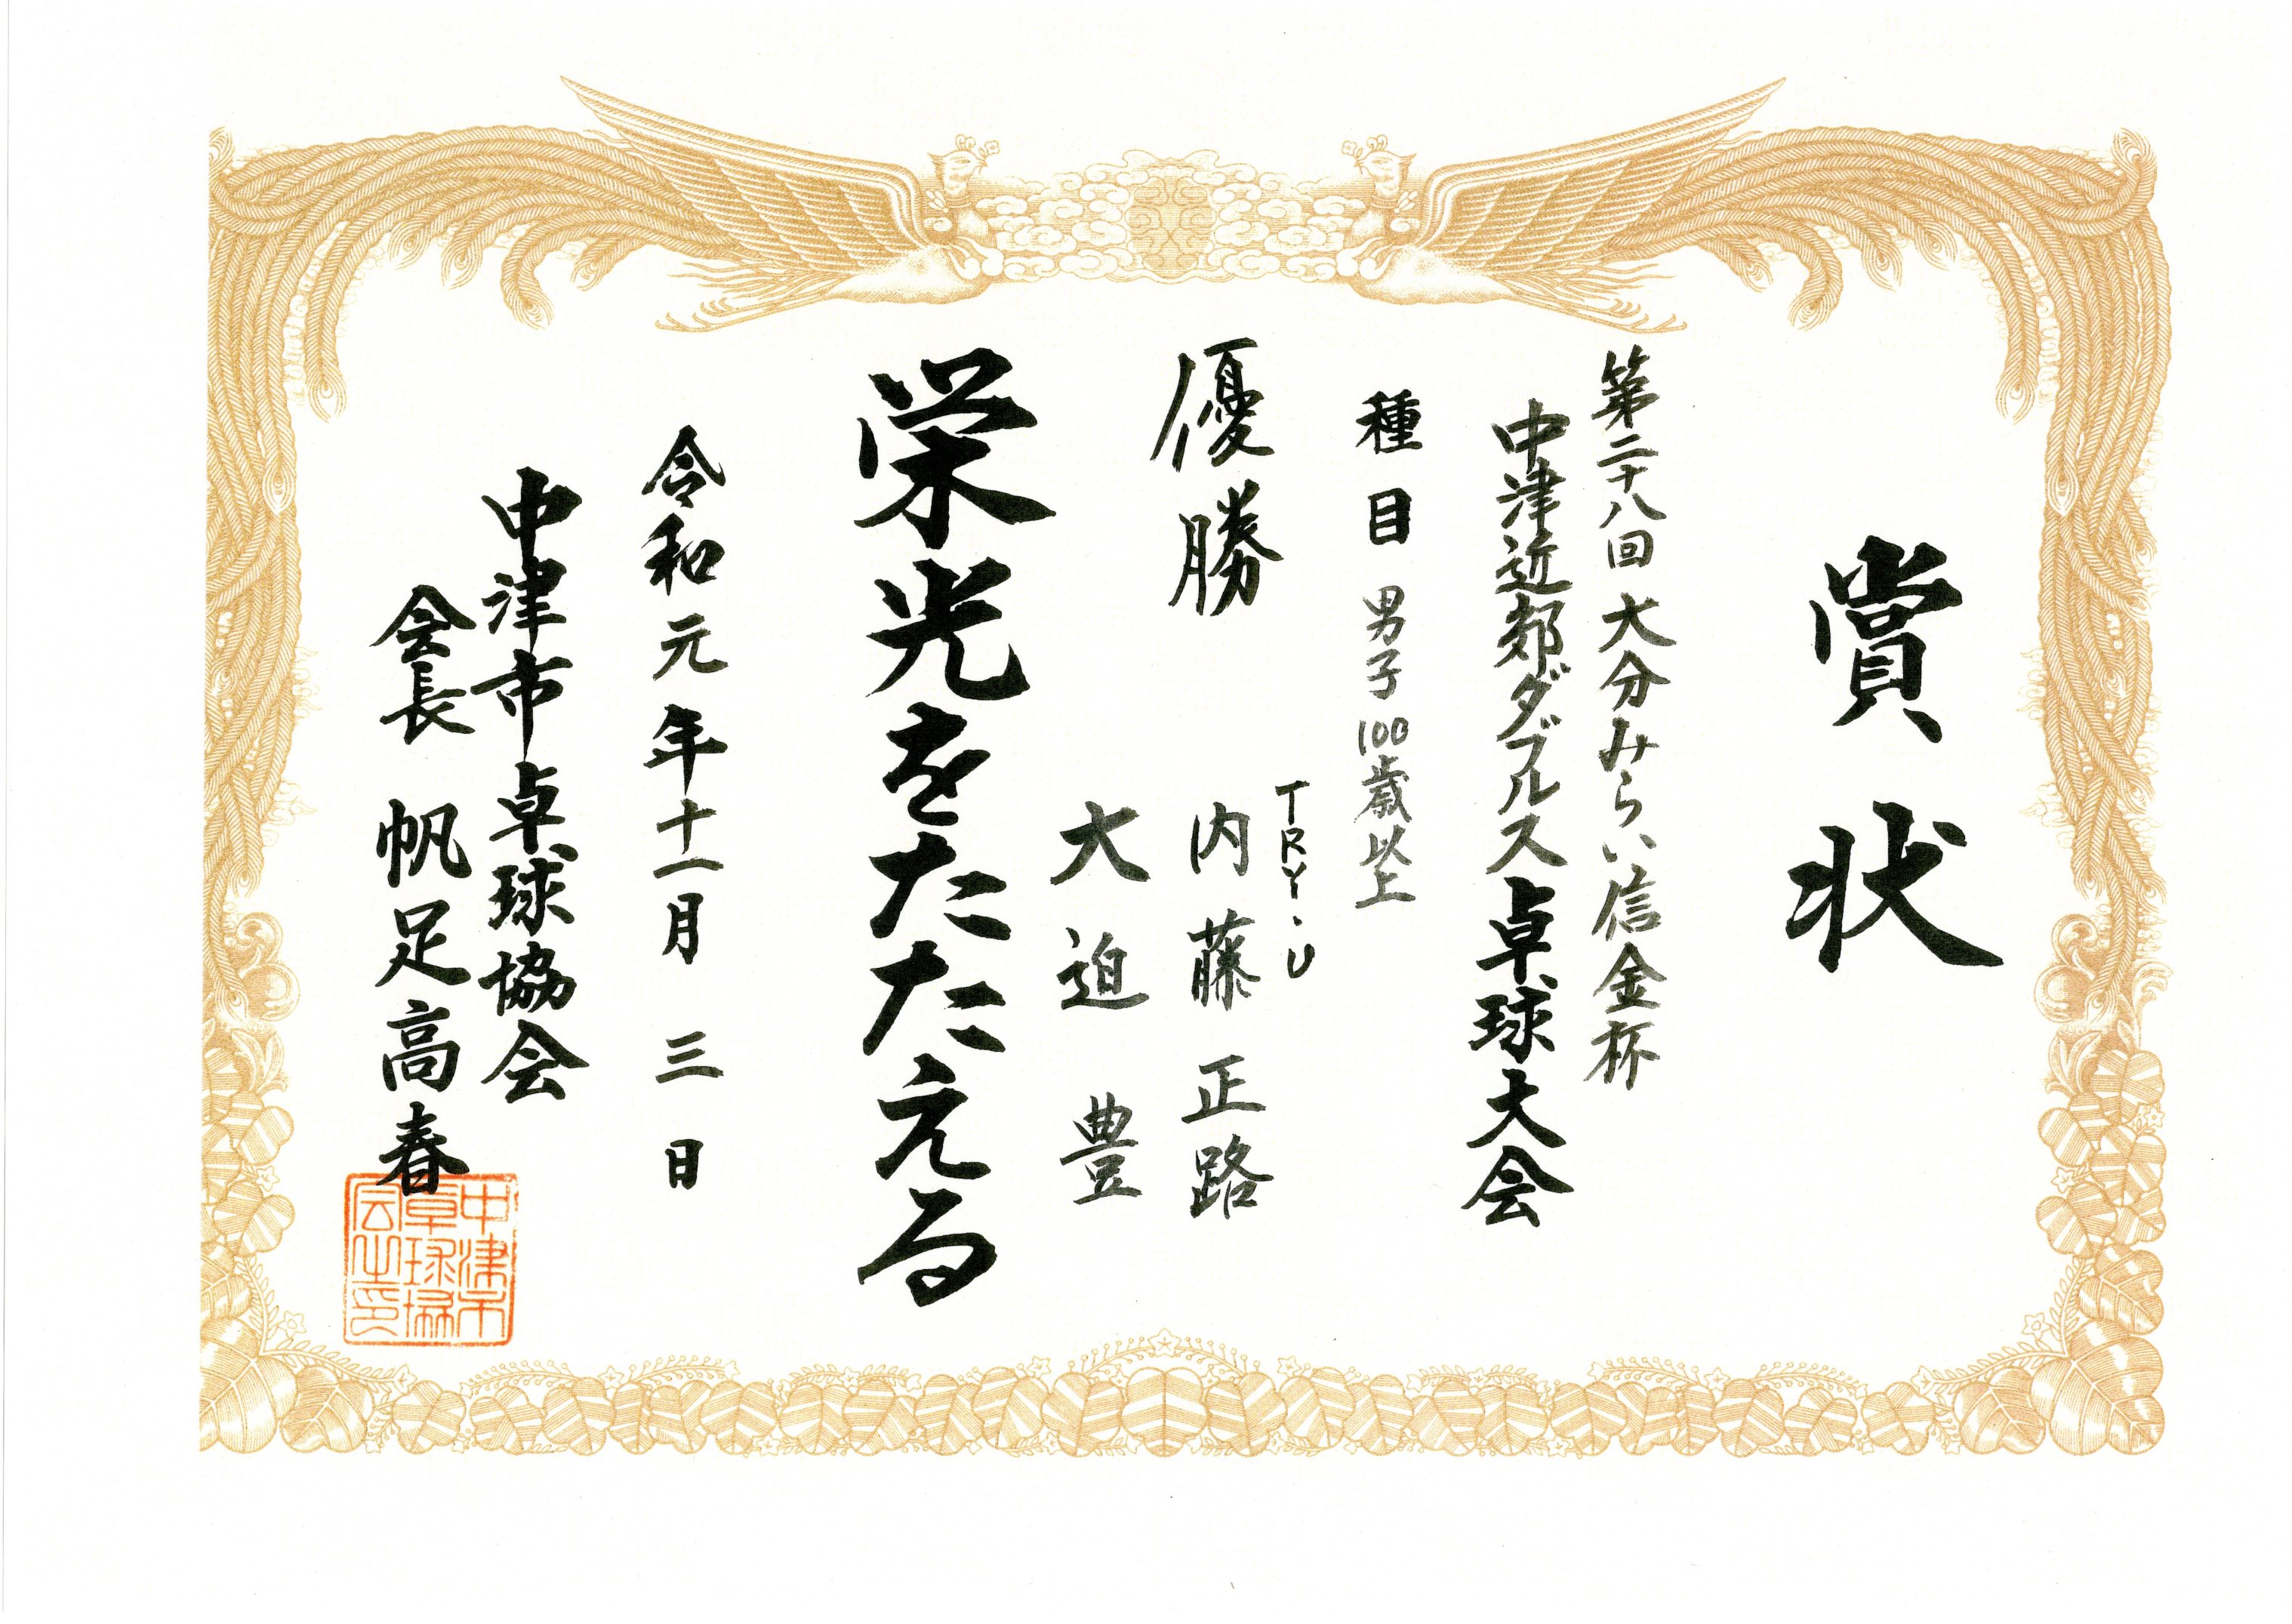 賞状
第二十八回大分みらい信金杯
中津近郊ダブルス卓球大会
種目 男子100歳以上
優勝
TRY・U
内藤正路
大迫豊
栄光をたたえる
令和元年十一月三日
中津市卓球協会
会長 帆足高春
中津市
卓球協
会之印